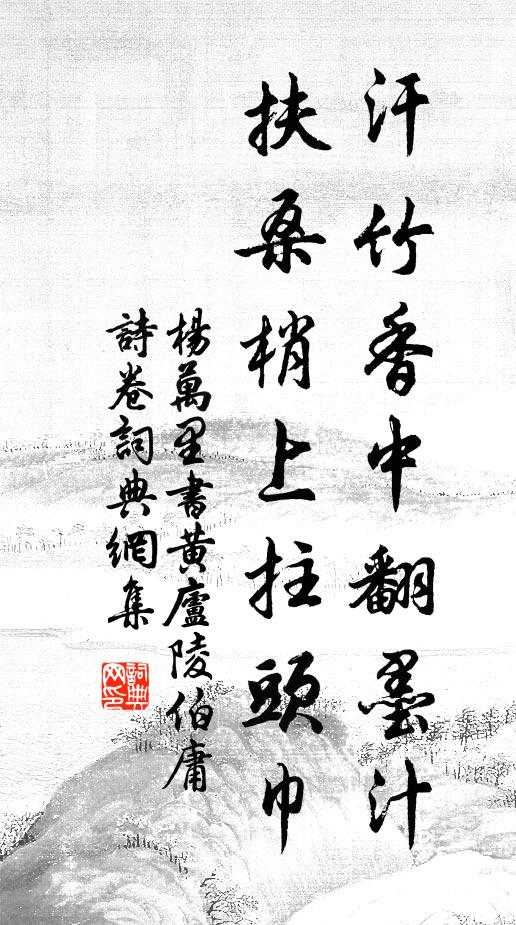 汗竹香中翻墨汁
扶桑梢上拄頭巾
楊萬里書黃廬陵伯庸
詩卷詞典網集
詞典网印